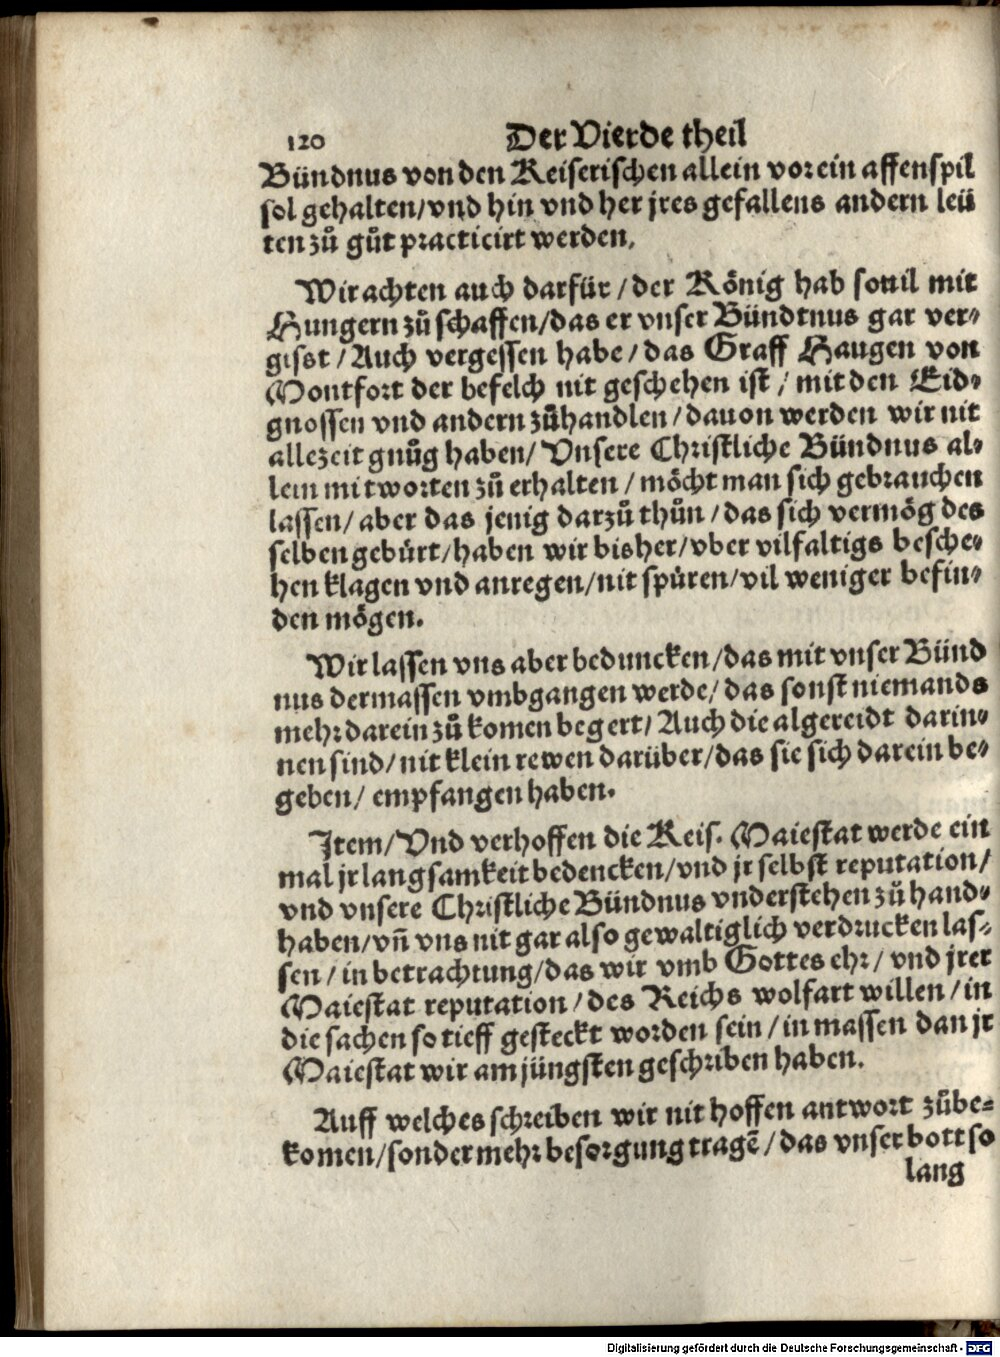 120 Der Vierde theil
Bündnus von den Keiserischen allein vor ein affenspil
sol gehalten/vnd hin vnd her jres gefallens andern leü
ten zů gůt practicirt werden.
Wir achten auch darfür/der König hab souil mit
Hungern zů schaffen/das er vnser Bündtnus gar ver-
gisst/Auch vergessen habe/das Graff Haugen von
Montfort der befelch nit geschehen ist/mit den Eid-
gnossen vnd andern zůhandlen/dauon werden wir nit
allezeit gnůg haben/Vnsere Christliche Bündnus al-
lein mit worten zů erhalten/möcht man sich gebrauchen
lassen/aber das jenig darzů thůn/das sich vermög des
selben gebürt/haben wir bisher/vber vilfaltigs besche-
hen klagen vnd anregen/nit spüren/vil weniger befin-
den mögen.
Wir lassen vns aber beduncken/das mit vnser Bünd
nus dermassen vmbgangen werde/das sonst niemands
mehr darein zů komen begert/Auch die algereidt darin-
nen sind/nit klein rewen darüber/das sie sich darein be-
geben/empfangen haben.
Item/Vnd verhoffen die Keis. Maiestat werde ein
mal jr langsamkeit bedencken/vnd jr selbst reputation/
vnd vnsere Christliche Bündnus vnderstehen zů hand-
haben/vñ vns nit gar also gewaltiglich verdrucken las-
sen/in betrachtung/das wir vmb Gottes ehr/vnd jrer
Maiestat reputation/des Reichs wolfart willen/in
die sachen so tieff gesteckt worden sein/in massen dan jr
Maiestat wir am jüngsten geschriben haben.
Auff welches schreiben wir nit hoffen antwort zůbe-
komen/sonder mehr besorgung tragẽ/das vnser bott so
lang
Digitalisierung gefördert durch die Deutsche Forschungsgemeinschaft - DFG